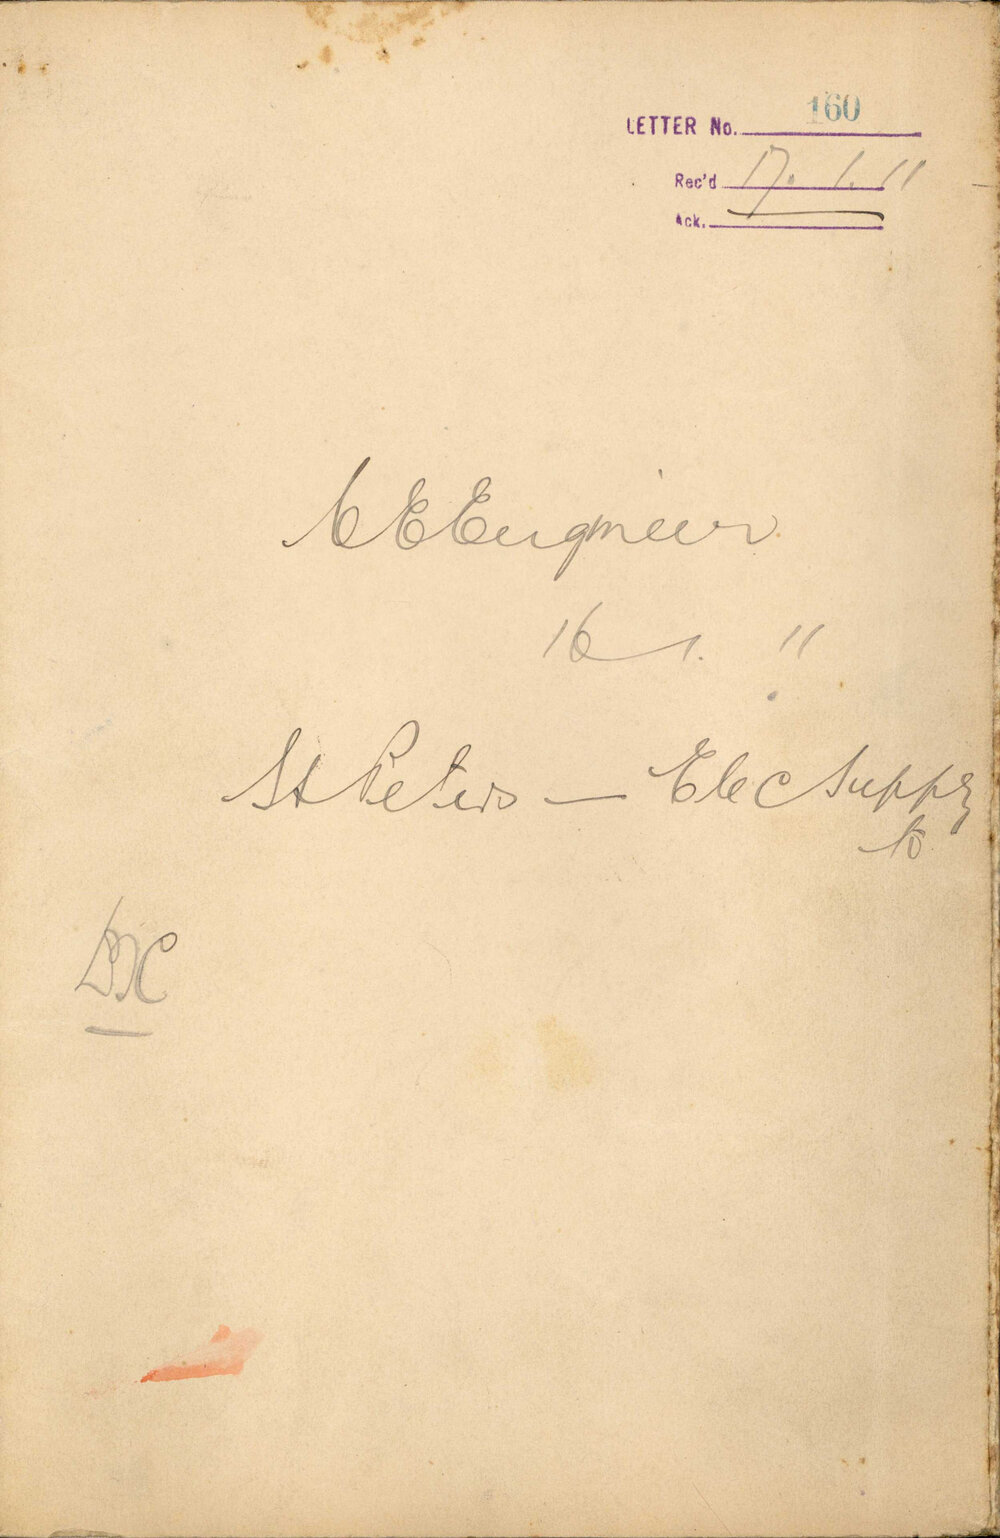 LETTER No. 160
Rec'd 17. 1. 11
Ack.
C E Engineer
16 1. 11
St Peters — Elec Supply
to